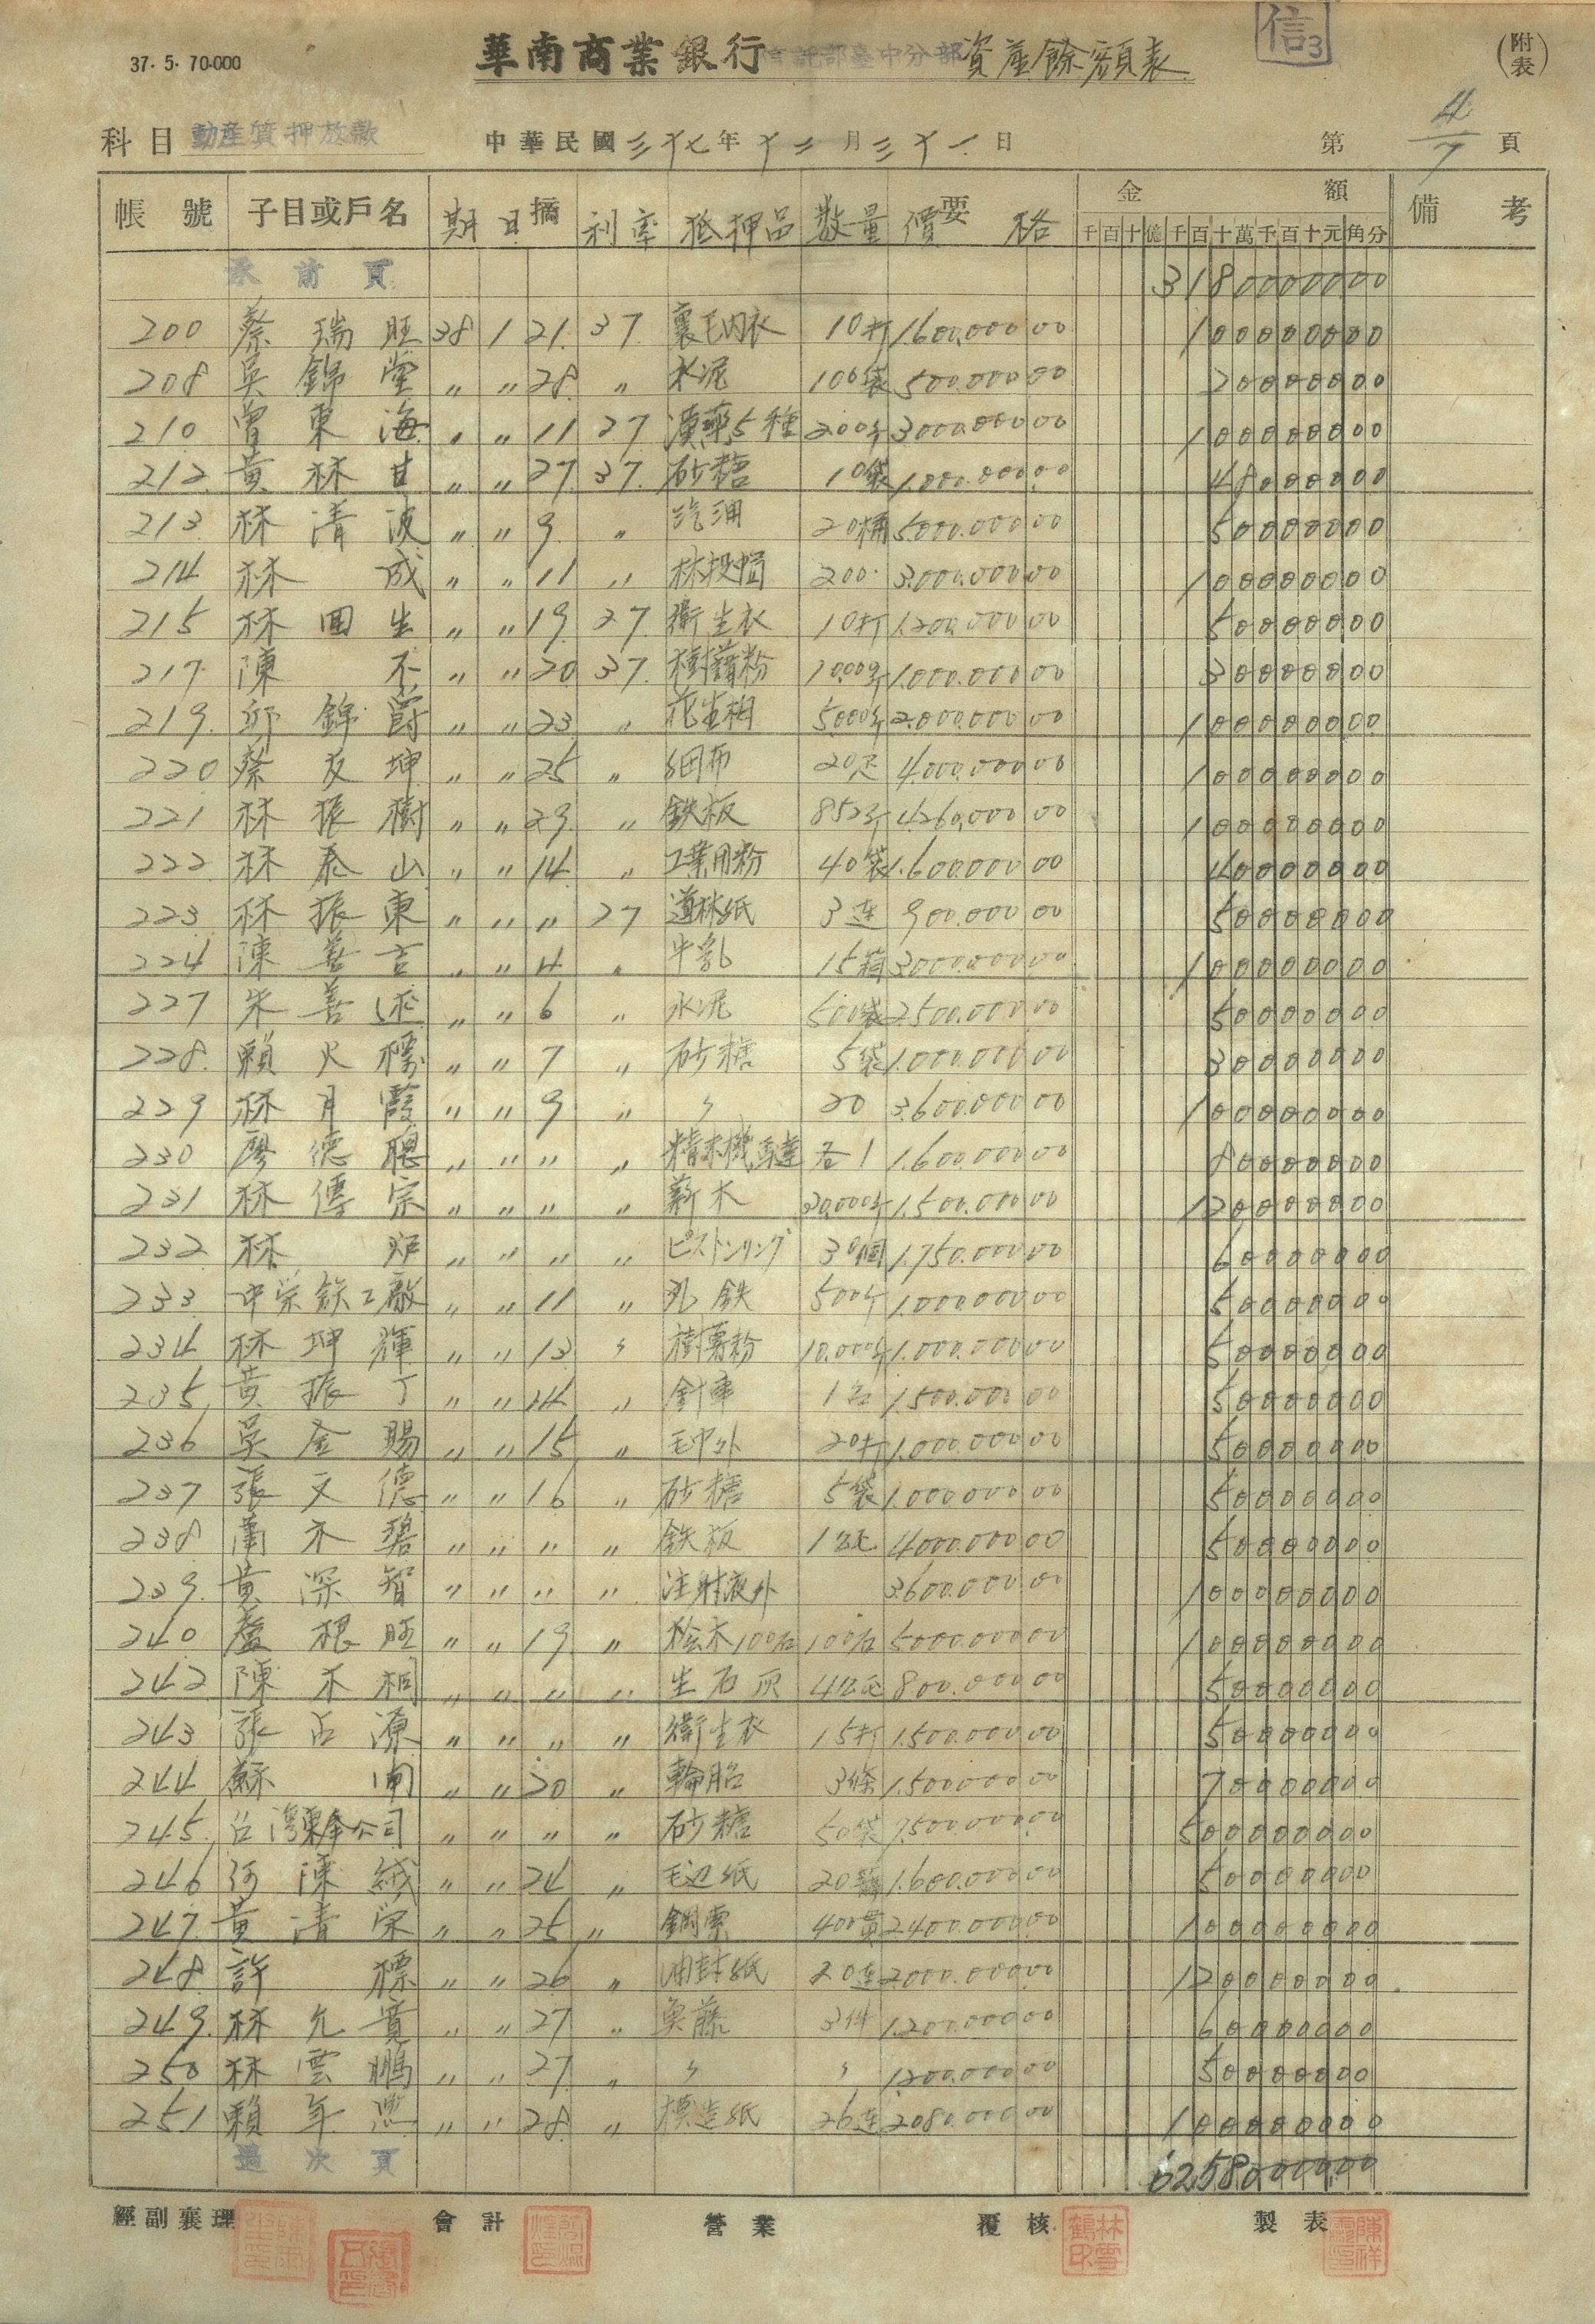 37·5·70·000
華南商業銀行信託部臺中分部資產餘額表
信3
(附表)
科目 動産質押放款 中華民國三十七年十二月三十一日 第 4/7 頁
帳號 子目或戶名 摘要 金額 備考
期日 利率 抵押品 数量 價格 千百十億千百十萬千百十元角分
承前頁 3180000000
200 蔡瑞旺 38 1 21 37 裏毛内衣 10打 1.600.000 00 100000000
208 吳錦堂 〃 〃 28 〃 水泥 100袋 500.000 00 20000000
210 曾東海 〃 〃 11 27 漢藥5種 200斤 3000.000 00 100000000
212 黃林甘 〃 〃 27 37 砂糖 10袋 1.000.000 00 48000000
213 林清波 〃 〃 9 〃 汽油 20桶 5.000.000 00 50000000
214 林成 〃 〃 11 〃 林投帽 200 3.000.000 00 100000000
215 林回生 〃 〃 19 27 衛生衣 10打 1.200.000 00 50000000
217 陳不 〃 〃 20 37 樹薯粉 10.000斤 1.000.000 00 30000000
219 邱錦爵 〃 〃 23 〃 花生粕 5.000斤 2.000.000 00 100000000
220 蔡友坤 〃 〃 25 〃 細布 20疋 4.000.000 00 100000000
221 林振樹 〃 〃 29 〃 鉄板 852斤 4.260.000 00 100000000
222 林泰山 〃 〃 14 〃 工業用粉 40袋 1.600.000 00 40000000
223 林振東 〃 〃 〃 27 道林紙 3連 900.000 00 50000000
224 陳善吉 〃 〃 4 〃 牛乳 15箱 3000.000 00 100000000
227 朱善述 〃 〃 6 〃 水泥 500袋 2500.000 00 50000000
228 賴火標 〃 〃 7 〃 砂糖 5袋 1.000.000 00 30000000
229 林月霞 〃 〃 9 〃 〃 20 3.600.000 00 100000000
230 廖德聰 〃 〃 〃 〃 精米機馬達 各1 1.600.000 00 80000000
231 林傳宗 〃 〃 〃 〃 薪木 30.000斤 1.500.000 00 120000000
232 林炉 〃 〃 〃 〃 ピストンリング 30個 1.750.000 00 60000000
233 中荣鉄工廠 〃 〃 11 〃 丸鉄 500斤 1.000.000 00 50000000
234 林坤輝 〃 〃 13 〃 樹薯粉 10.000斤 1.000.000 00 50000000
235 黃振丁 〃 〃 14 〃 針車 1台 1.500.000 00 50000000
236 吳金賜 〃 〃 15 〃 毛巾外 20打 1.000.000 00 50000000
237 張文德 〃 〃 16 〃 砂糖 5袋 1.000.000 00 50000000
238 蕭木碧 〃 〃 〃 〃 鉄板 1噸 4000.000 00 50000000
239 黃深智 〃 〃 〃 〃 注射液外 3.600.000 00 100000000
240 盧根旺 〃 〃 19 〃 桧木100石 100石 5000.000 00 100000000
242 陳木桐 〃 〃 〃 〃 生石灰 4噸 800.000 00 50000000
243 張占源 〃 〃 〃 〃 衛生衣 15打 1.500.000 00 50000000
244 蘇闹 〃 〃 20 〃 輪胎 3條 1.500.000 00 70000000
245 台湾東奎公司 〃 〃 〃 〃 砂糖 50袋 7.500.000 00 500000000
246 何陳絨 〃 〃 24 〃 毛边紙 20 1.600.000 00 50000000
247 黃清榮 〃 〃 25 〃 鋼索 400貫 2400.000 00 100000000
248 許標 〃 〃 26 〃 油封紙 20連 2000.000 00 120000000
249 林允寬 〃 〃 27 〃 魚藤 3件 1.200.000 00 60000000
250 林雲鵬 〃 〃 27 〃 〃 〃 1.200.000 00 50000000
251 賴年 〃 〃 28 〃 模造紙 26連 2080.000 00 100000000
過次頁 6258000000
經副襄理 會計 營業 覆核 製表
林雪鶴印